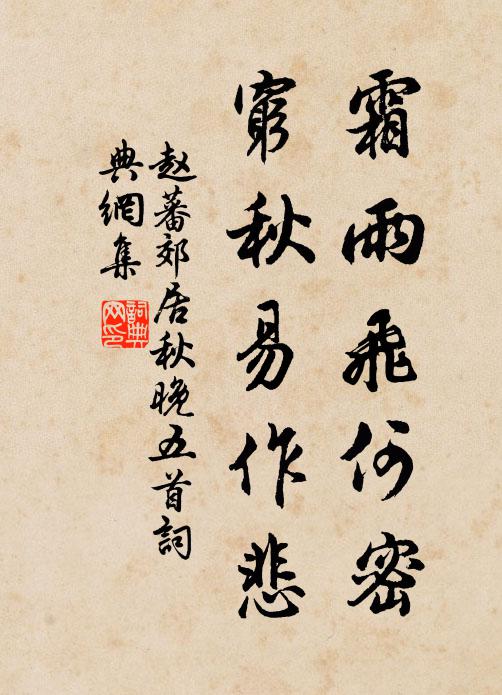 霜雨飛何密
窮秋易作悲
赵蕃郊居秋晚五首詞
典網集
詞典
网印